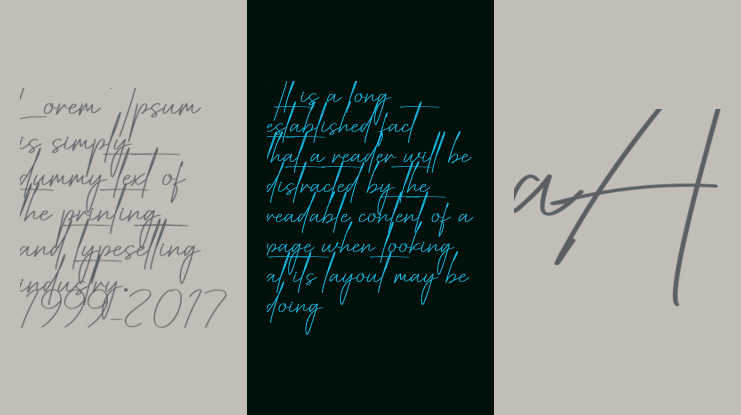 Lorem Ipsum
is simply
dummy text of
the printing
and typesetting
industry.
1999-2017
It is a long
established fact
that a reader will be
distracted by the
readable content of a
page when looking
at its layout may be
doing
aH